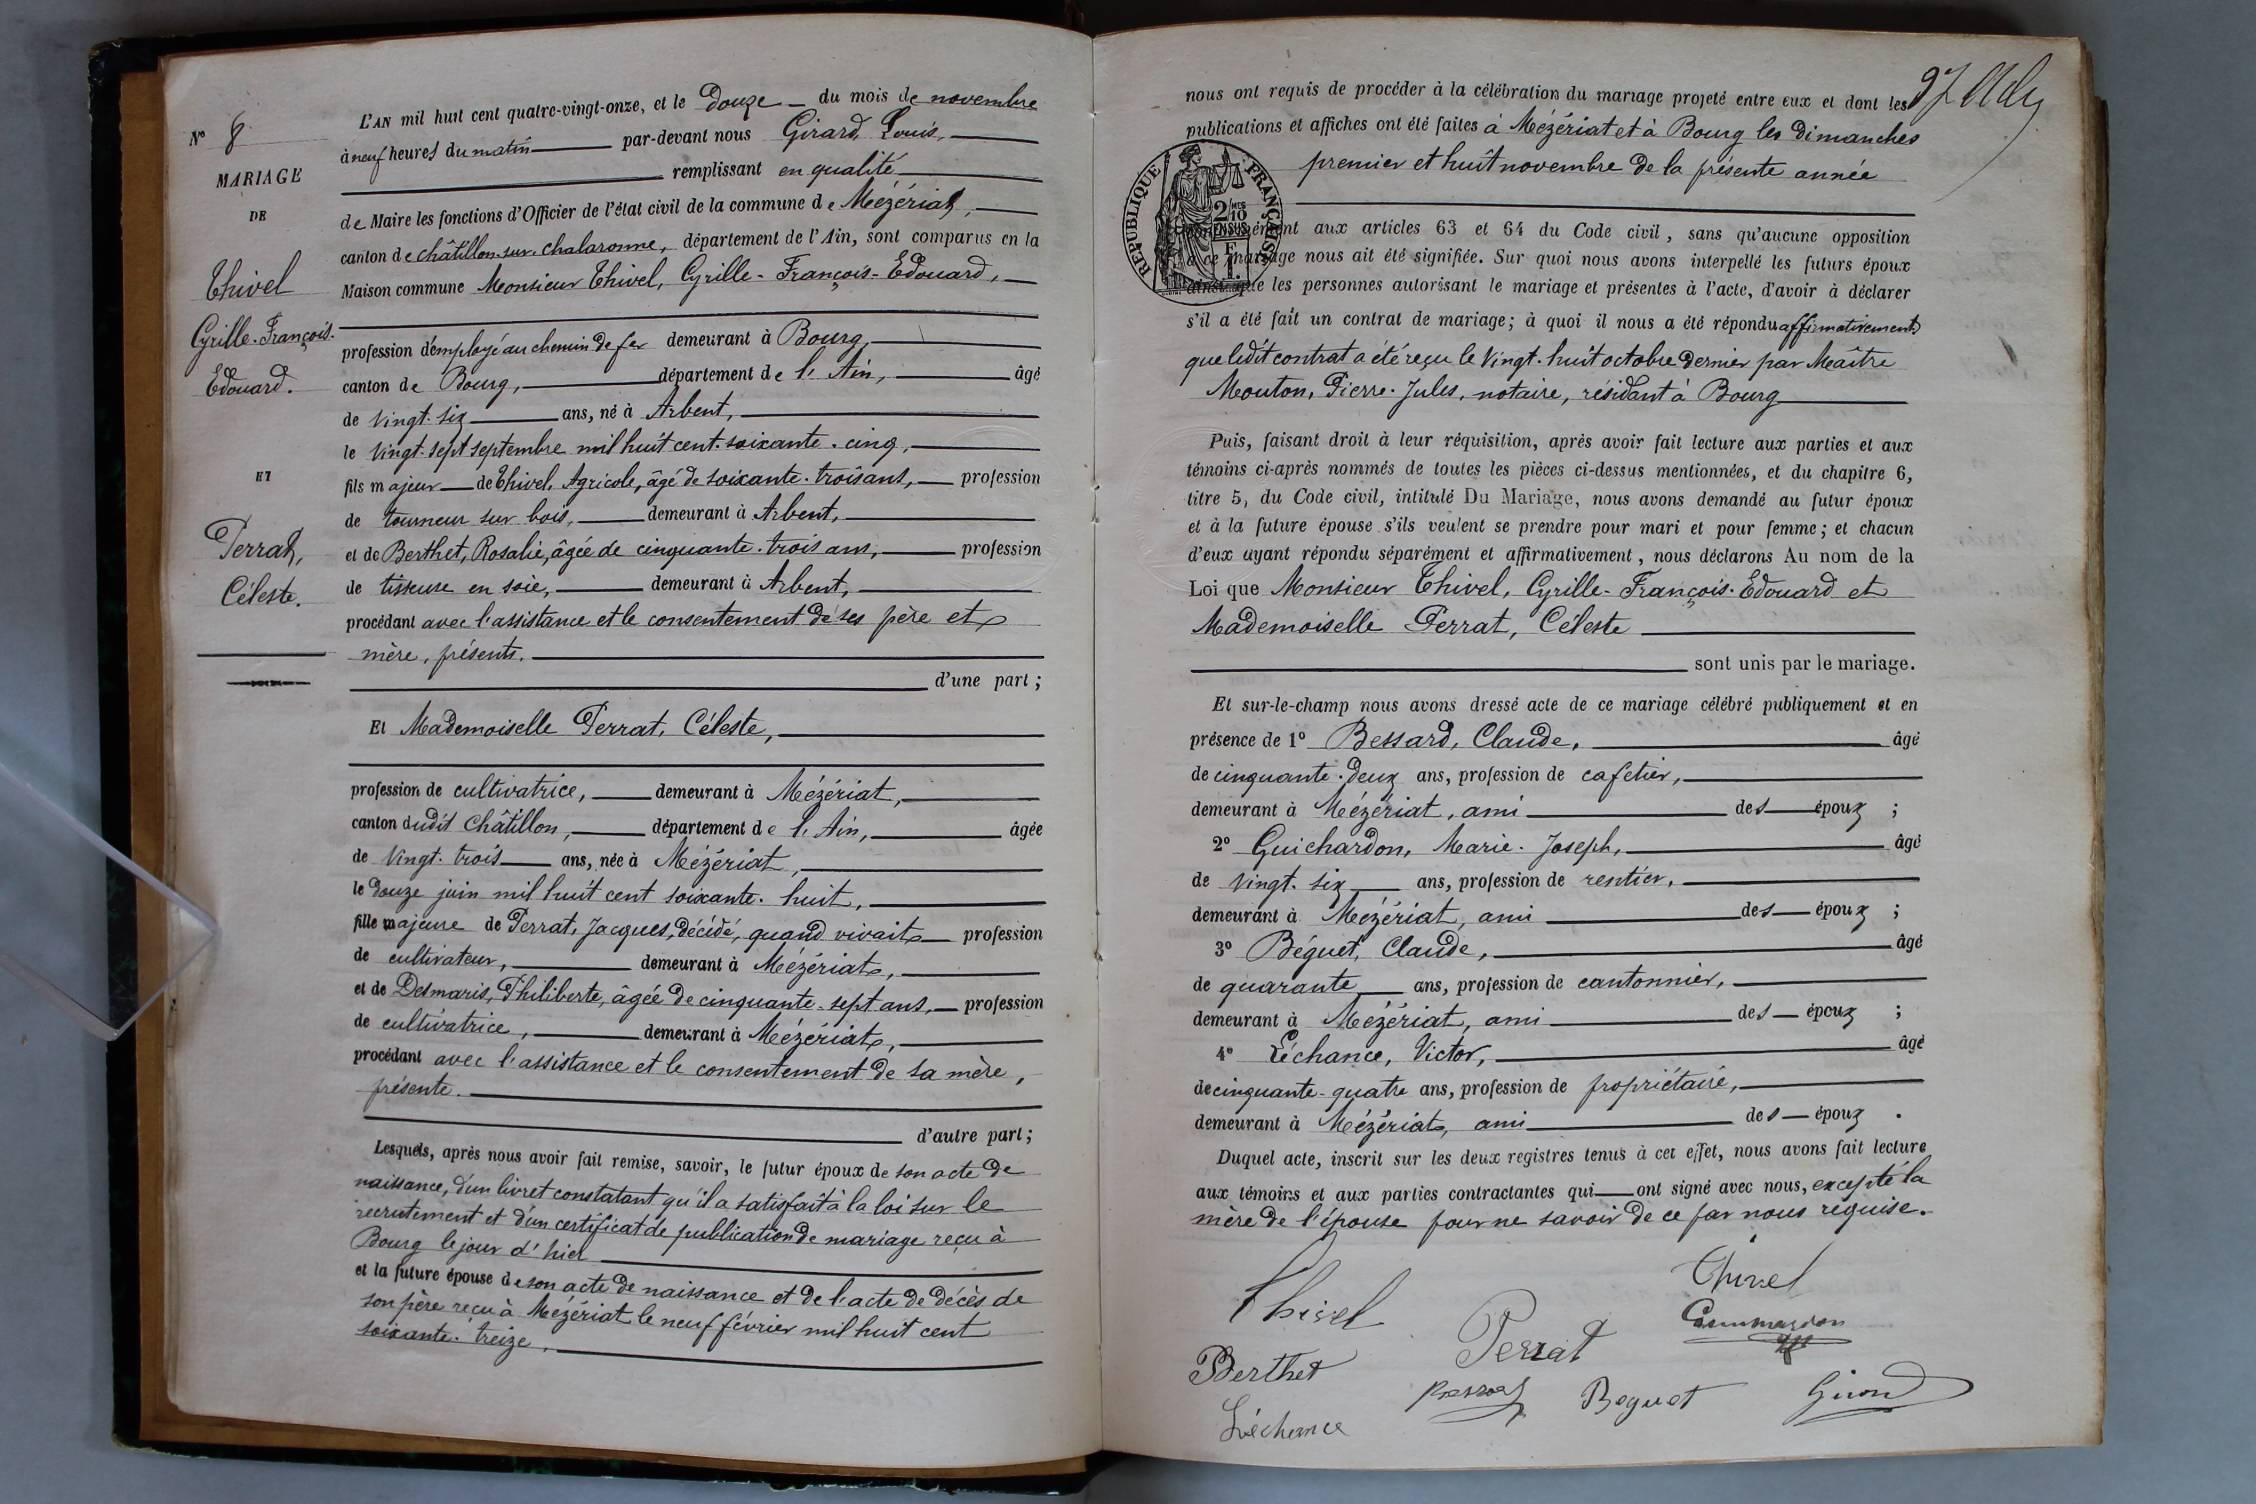 L'AN mil huit cent quatre-vingt-onze, et le douze du mois de novembre
à neuf heures du matin par-devant nous Girard Louis,
remplissant en qualité
de Maire les fonctions d'Officier de l'état civil de la commune de Mézériat,
canton de châtillon-sur-chalaronne, département de l'Ain, sont comparus en la
Maison commune Monsieur Thivel, Cyrille-François-Edouard,
profession d'employé au chemin de fer demeurant à Bourg,
canton de Bourg, département de l'Ain, âgé
de vingt-six ans, né à Arbent,
le vingt-sept septembre mil huit cent soixante-cinq,
fils majeur de Thivel, Agricole, âgé de soixante-trois ans, profession
de tourneur sur bois, demeurant à Arbent,
et de Berthet, Rosalie, âgée de cinquante-trois ans, profession
de tisseuse en soie, demeurant à Arbent,
procédant avec l'assistance et le consentement de ses père et
mère, présents.
d'une part;
Et Mademoiselle Perrat, Céleste,
profession de cultivatrice, demeurant à Mézériat,
canton dudit Châtillon, département de l'Ain, âgée
de vingt-trois ans, née à Mézériat,
le douze juin mil huit cent soixante-huit,
fille majeure de Perrat, Jacques, décédé, quand vivait profession
de cultivateur, demeurant à Mézériat,
et de Desmaris, Philiberte, âgée de cinquante-sept ans, profession
de cultivatrice, demeurant à Mézériat,
procédant avec l'assistance et le consentement de sa mère,
présente.
d'autre part;
Lesquels, après nous avoir fait remise, savoir, le futur époux de son acte de
naissance, d'un livret constatant qu'il a satisfait à la loi sur le
recrutement et d'un certificat de publication de mariage reçu à
Bourg le jour d'hier
et la future épouse de son acte de naissance et de l'acte de décès de
son père reçu à Mézériat le neuf février mil huit cent
soixante-treize,
N° 8
MARIAGE
DE
Thivel
Cyrille-François-
Edouard.
ET
Perrat,
Céleste.
97
nous ont requis de procéder à la célébration du mariage projeté entre eux et dont les
publications et affiches ont été faites à Mézériat et à Bourg les dimanches
premier et huit novembre de la présente année
RÉPUBLIQUE FRANÇAISE
2/10 EN SUS
aux articles 63 et 64 du Code civil, sans qu'aucune opposition
à ce mariage nous ait été signifiée. Sur quoi nous avons interpellé les futurs époux
ainsi que les personnes autorisant le mariage et présentes à l'acte, d'avoir à déclarer
s'il a été fait un contrat de mariage; à quoi il nous a été répondu affirmativement
que ledit contrat a été reçu le vingt-huit octobre dernier par Maître
Mouton, Pierre-Jules, notaire, résidant à Bourg
Puis, faisant droit à leur réquisition, après avoir fait lecture aux parties et aux
témoins ci-après nommés de toutes les pièces ci-dessus mentionnées, et du chapitre 6,
titre 5, du Code civil, intitulé Du Mariage, nous avons demandé au futur époux
et à la future épouse s'ils veulent se prendre pour mari et pour femme; et chacun
d'eux ayant répondu séparément et affirmativement, nous déclarons Au nom de la
Loi que Monsieur Thivel, Cyrille-François-Edouard et
Mademoiselle Perrat, Céleste
sont unis par le mariage.
Et sur-le-champ nous avons dressé acte de ce mariage célébré publiquement et en
présence de 1° Bessard, Claude, âgé
de cinquante-deux ans, profession de cafetier,
demeurant à Mézériat, ami des époux ;
2° Guichardon, Marie-Joseph, âgé
de vingt-six ans, profession de rentier,
demeurant à Mézériat, ami des époux ;
3° Béguet, Claude, âgé
de quarante ans, profession de cantonnier,
demeurant à Mézériat, ami des époux ;
4° Léchance, Victor, âgé
de cinquante-quatre ans, profession de propriétaire,
demeurant à Mézériat, ami des époux .
Duquel acte, inscrit sur les deux registres tenus à cet effet, nous avons fait lecture
aux témoins et aux parties contractantes qui ont signé avec nous, excepté la
mère de l'épouse pour ne savoir de ce par nous requise.
Thivel
Thivel
Perrat
Berthet
Beguet
Girard
Léchance